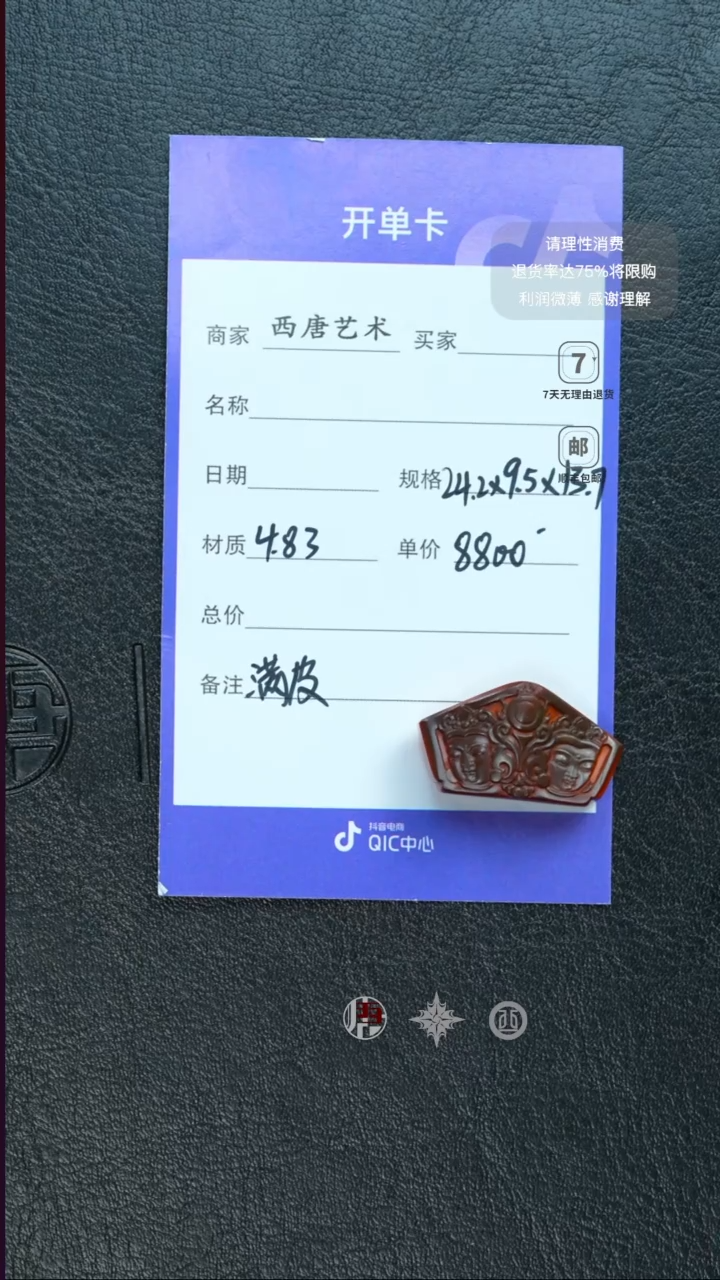 开单卡
请理性消费
退货率达75%将限购
利润微薄 感谢理解
商家 西唐艺术 买家
7
7天无理由退货
名称
邮
日期 规格 24.2x9.5x13.7
材质 4.83 单价 8800
总价
备注 满皮
抖音电商
QIC中心
西